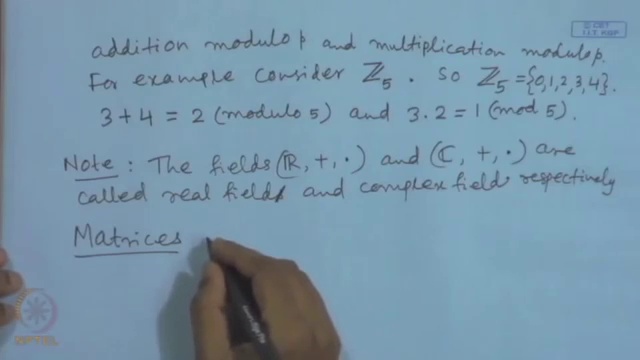 © CET
I.I.T. KGP
addition modulo p and multiplication modulo p.
For example consider ℤ₅ . So ℤ₅ = {0,1,2,3,4}.
3 + 4 = 2 (modulo 5) and 3 . 2 = 1 (mod 5).
Note : The fields (ℝ, +, ·) and (ℂ, +, ·) are
called real field and complex field respectively
Matrices
NPTEL